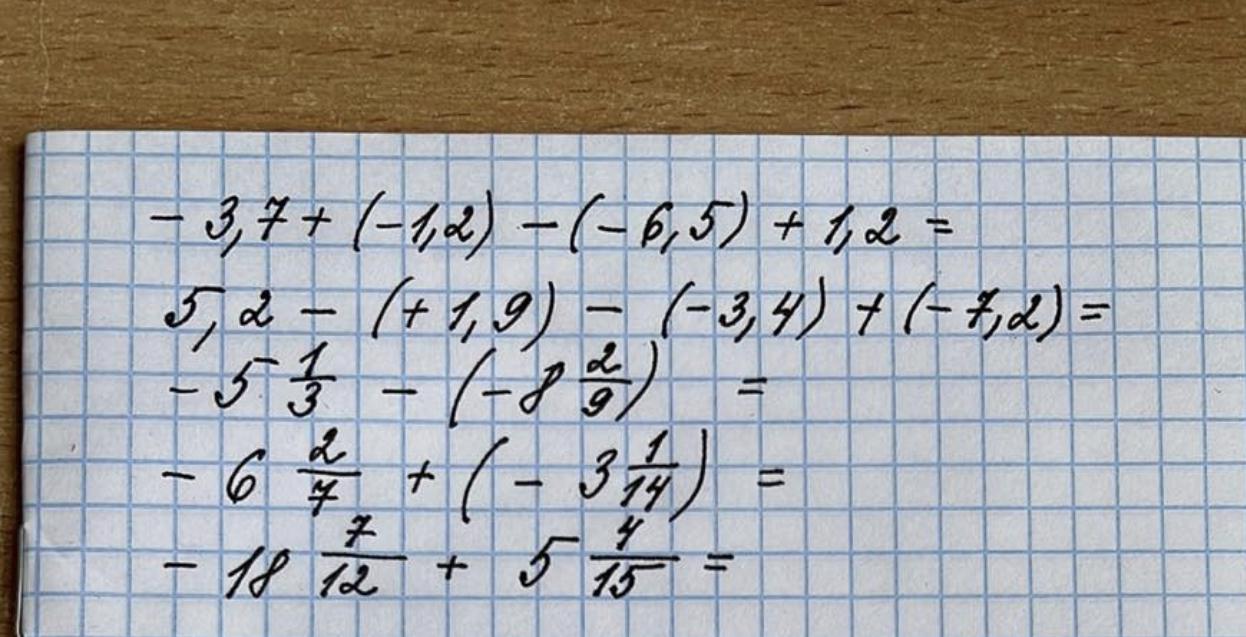 - 3,7 + (-1,2) - (- 6,5) + 1,2 =
5,2 - (+ 1,9) - (-3,4) + (- 7,2) =
- 5 1/3 - (- 8 2/9) =
- 6 2/7 + (- 3 1/14) =
- 18 7/12 + 5 4/15 =